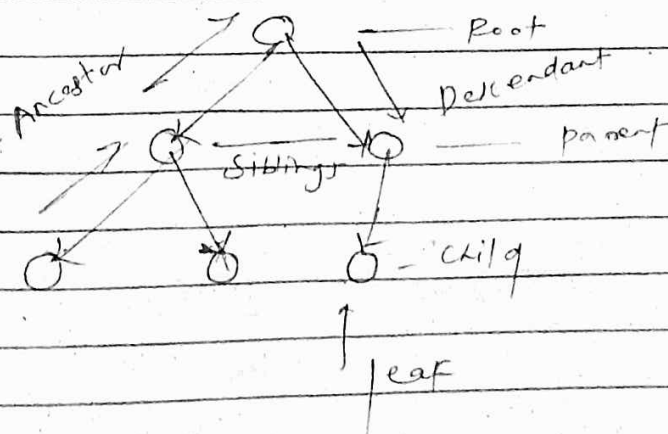 Root
Ancestor
Descendant
Siblings
parent
child
leaf